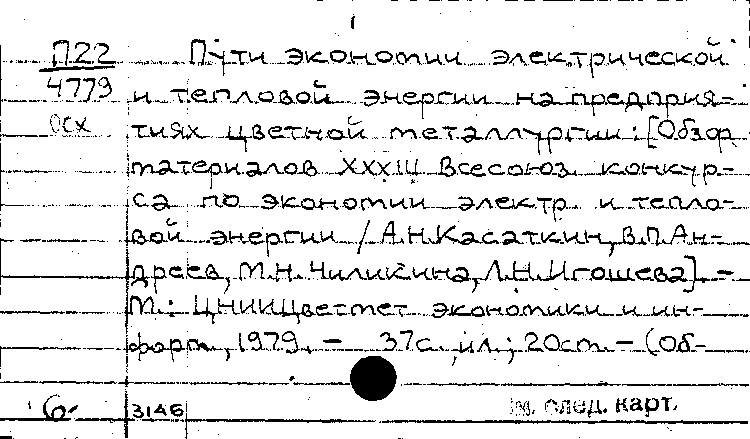 П22 Пути экономии электрической
4779 и тепловой энергии на предприя=
осх тиях цветной металлургии: [Обзор
материалов XXXIII Всесоюз. конкур-
са по экономии электр. и тепло-
вой энергии / А.Н.Касаткин, В.П.Ан-
дреев, М.Н.Чиликина, Л.Н.Игошева]. -
М.: ЦНИИЦветмет экономики и ин-
форм., 1979. - 37с., ил.; 20см. - (Об-
6- 3146 см. след. карт.